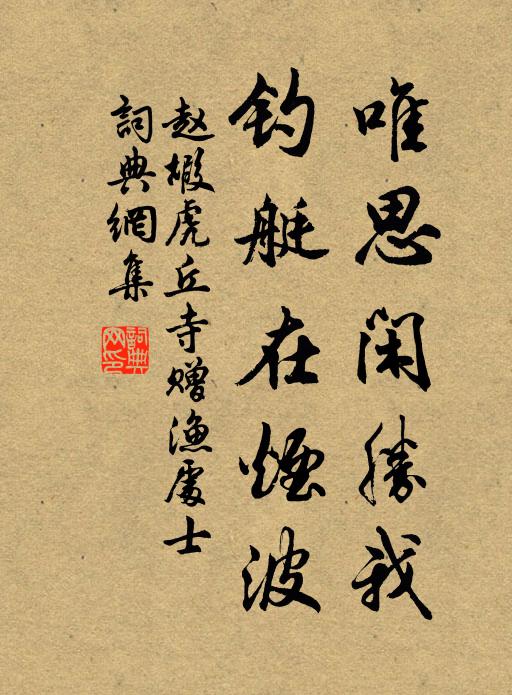 唯思闲勝我
钓艇在煙波
赵嘏虎丘寺赠漁處士
詞典網集
詞典网印